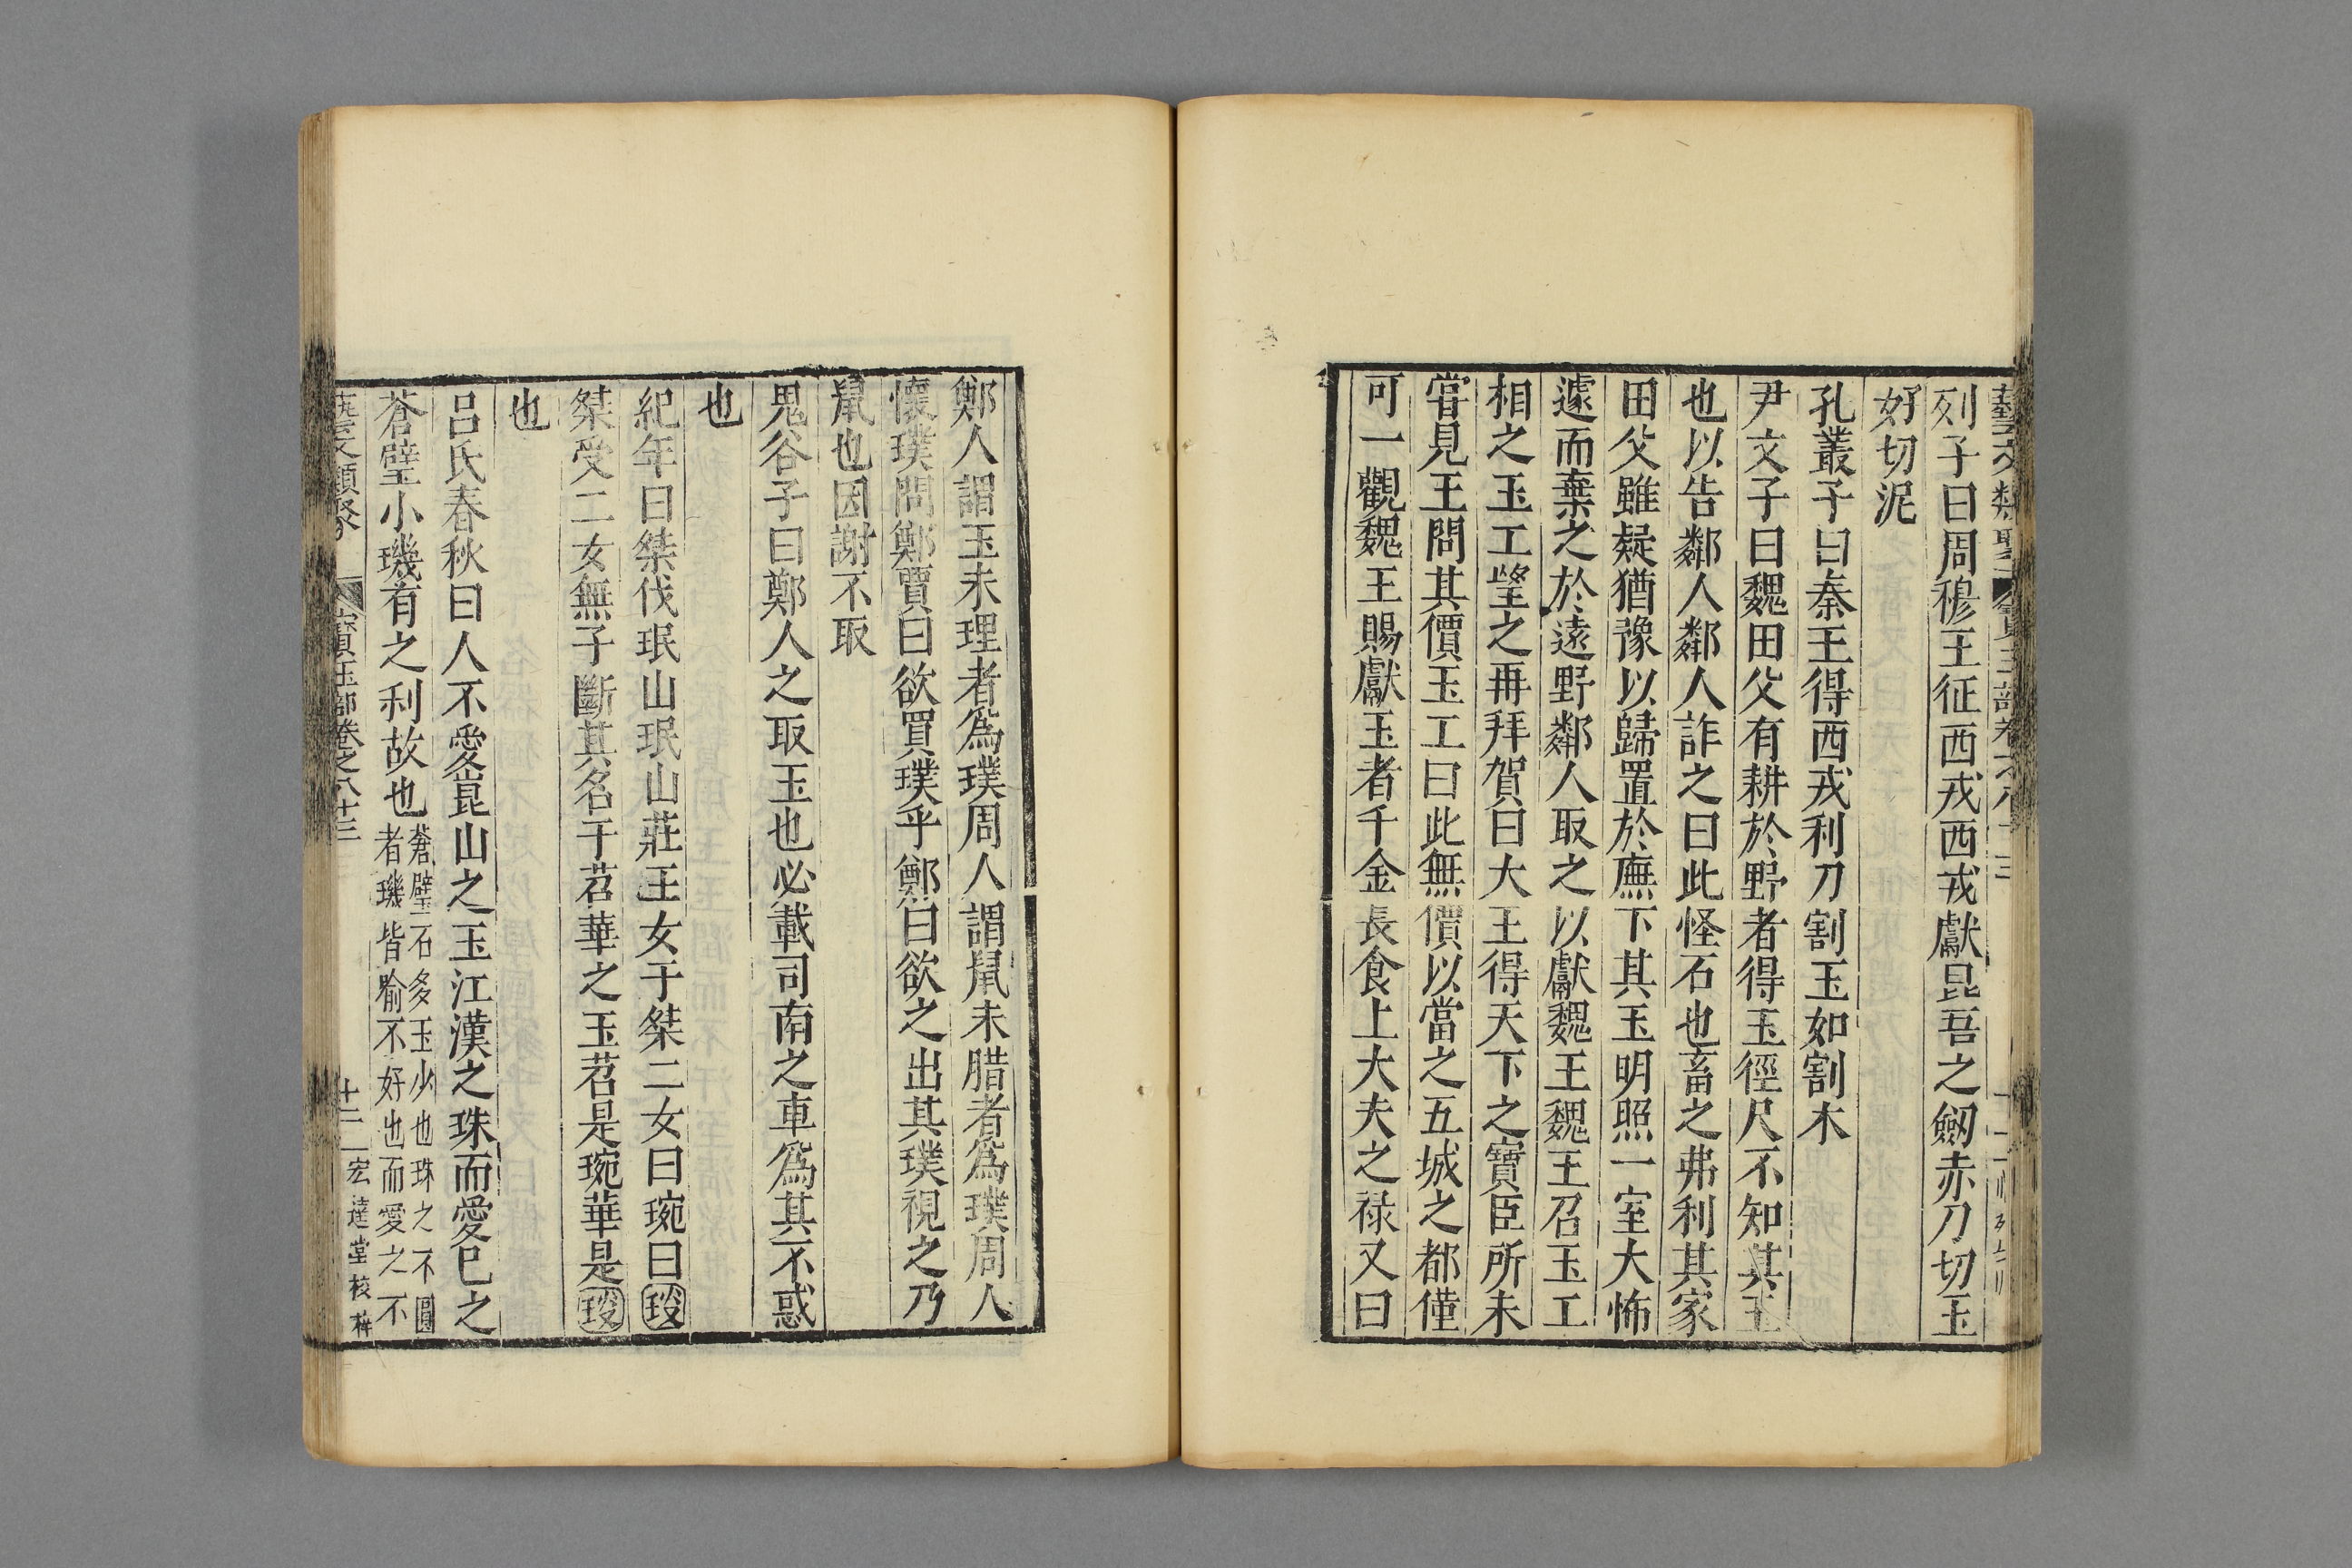 列子曰周穆王征西戎西戎獻昆吾之劒赤刀切玉
如切泥
孔叢子曰秦王得西戎利刀割玉如割木
尹文子曰魏田父有耕於野者得玉徑尺不知其玉
也以告鄰人鄰人詐之曰此怪石也畜之弗利其家
田父雖疑猶豫以歸置於廡下其玉明照一室大怖
遽而棄之於遠野鄰人取之以獻魏王魏王召玉工
相之玉工望之再拜賀曰大王得天下之寶臣所未
甞見王問其價玉工曰此無價以當之五城之都僅
可一觀魏王賜獻玉者千金長食上大夫之禄又曰
鄭人謂玉未理者爲璞周人謂鼠未腊者爲璞周人
懷璞問鄭賈曰欲買璞乎鄭曰欲之出其璞視之乃
鼠也因謝不取
鬼谷子曰鄭人之取玉也必載司南之車爲其不惑
也
紀年曰桀伐珉山珉山莊王女于桀二女曰琬曰琰
桀受二女無子斷其名于苕華之玉苕是琬華是琰
也
呂氏春秋曰人不愛崑山之玉江漢之珠而愛巳之
蒼璧小璣有之利故也蒼璧石多玉少也珠之不圓
者璣皆喻不好也而愛之不
藝文類聚 寶玉部卷之八十三 十二 宏達堂校梓